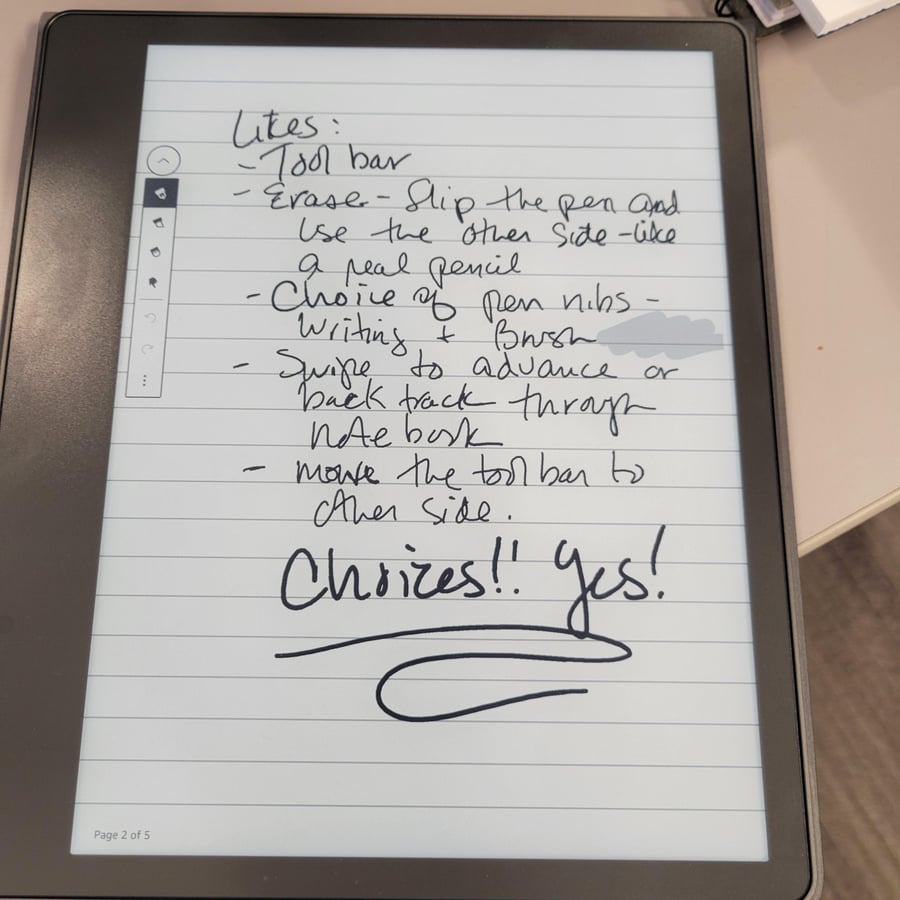 Likes:
- Tool bar
- Erase - Slip the pen and
use the other side - like
a real pencil
- Choice of pen nibs -
Writing + Brush
- Swipe to advance or
back track through
note book
- move the tool bar to
other side.
Choices!! Yes!
Page 2 of 5